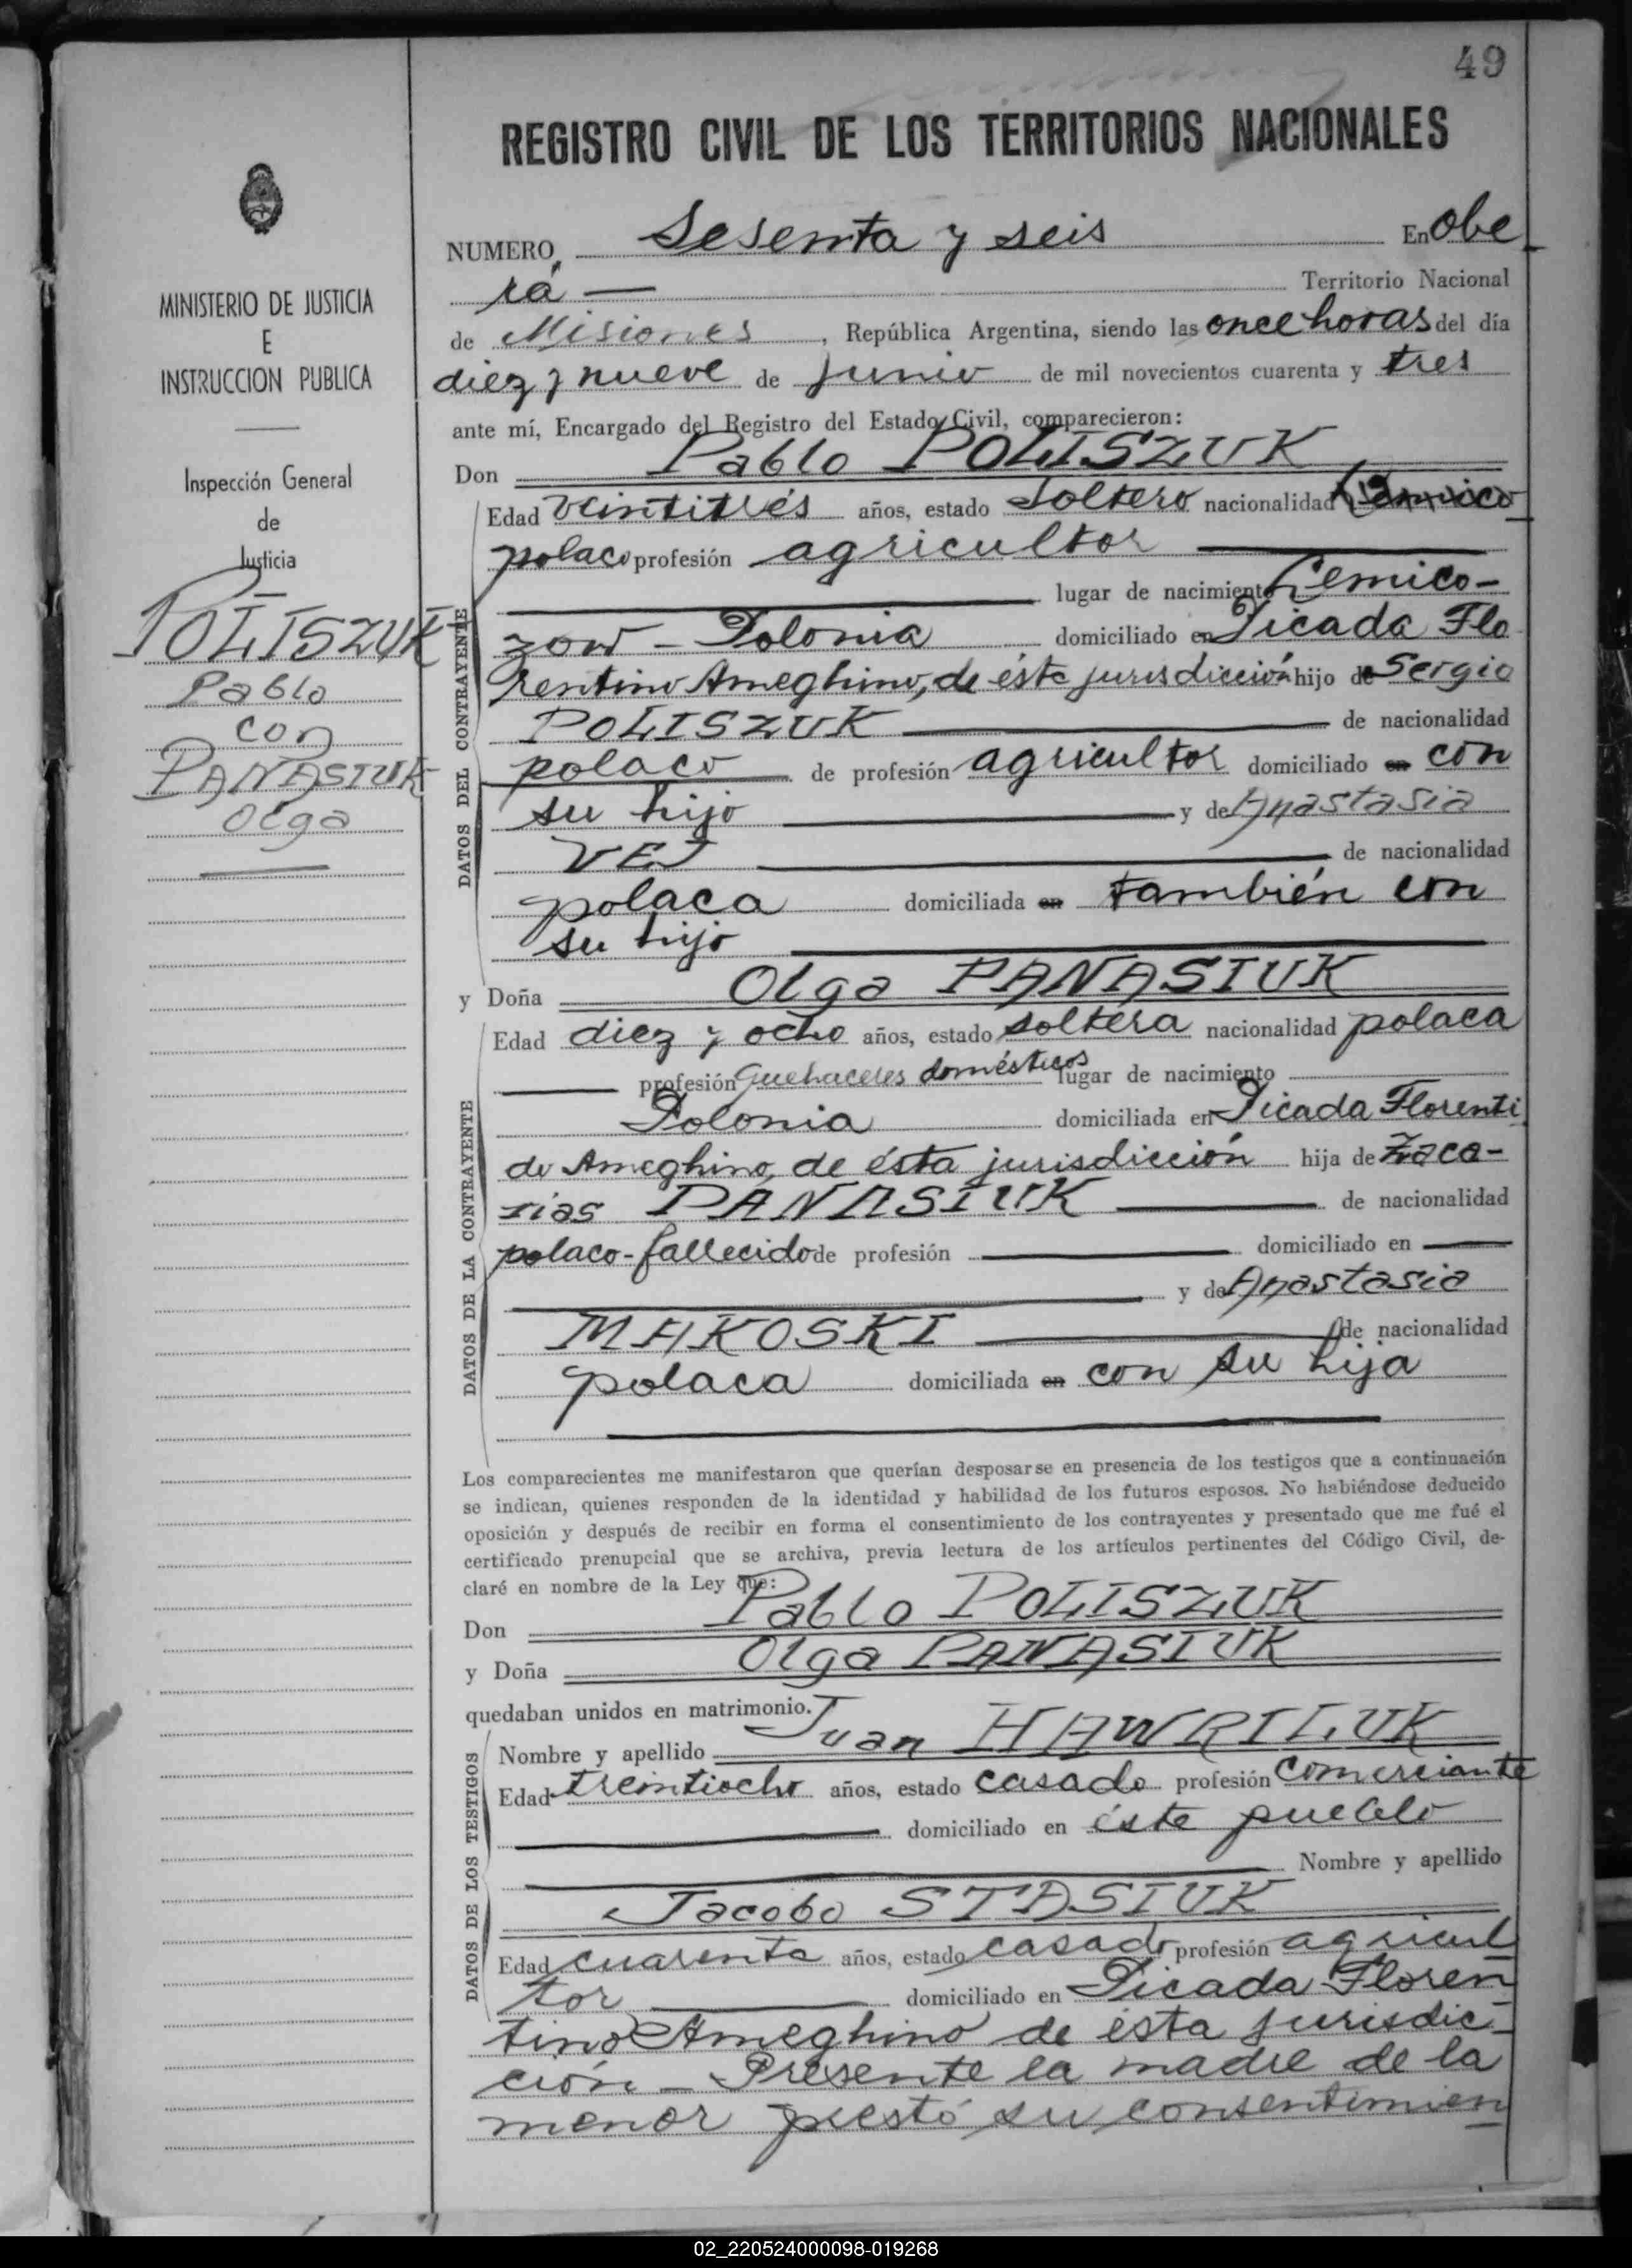 49
REGISTRO CIVIL DE LOS TERRITORIOS NACIONALES
MINISTERIO DE JUSTICIA
E
INSTRUCCION PUBLICA
Inspección General
de
Justicia
POLISZUK
Pablo
con
PANASIUK
Olga
NUMERO Sesenta y seis En Obe
rá — Territorio Nacional
de Misiones, República Argentina, siendo las once horas del día
diez y nueve de junio de mil novecientos cuarenta y tres
ante mí, Encargado del Registro del Estado Civil, comparecieron:
Don Pablo POLISZUK
DATOS DEL CONTRAYENTE
Edad veintitrés años, estado soltero nacionalidad
polaco profesión agricultor
lugar de nacimiento Cemico-
zow - Polonia domiciliado en Picada Flo
rentino Ameghino, de ésta jurisdicción hijo de Sergio
POLISZUK de nacionalidad
polaco de profesión agricultor domiciliado en con
su hijo y de Anastasia
VEJ de nacionalidad
polaca domiciliada en también con
su hijo
y Doña Olga PANASIUK
DATOS DE LA CONTRAYENTE
Edad diez y ocho años, estado soltera nacionalidad polaca
profesión Quehaceres domésticos lugar de nacimiento
Polonia domiciliada en Picada Florenti
do Ameghino, de ésta jurisdicción hija de Zaca-
rias PANASIUK de nacionalidad
polaco-fallecido de profesión domiciliado en
y de Anastasia
MAKOSKI de nacionalidad
polaca domiciliada en con su hija
Los comparecientes me manifestaron que querían desposarse en presencia de los testigos que a continuación
se indican, quienes responden de la identidad y habilidad de los futuros esposos. No habiéndose deducido
oposición y después de recibir en forma el consentimiento de los contrayentes y presentado que me fué el
certificado prenupcial que se archiva, previa lectura de los artículos pertinentes del Código Civil, de-
claré en nombre de la Ley que:
Don Pablo POLISZUK
y Doña Olga PANASIUK
quedaban unidos en matrimonio.
DATOS DE LOS TESTIGOS
Nombre y apellido Juan HAWRILUK
Edad treintiocho años, estado casado profesión comerciante
domiciliado en éste pueblo
Nombre y apellido
Jacobo STASIUK
Edad cuarenta años, estado casado profesión agricul
tor domiciliado en Picada Floren
tino Ameghino de ésta jurisdic-
ción - Presente la madre de la
menor prestó su consentimien
02_220524000098-019268